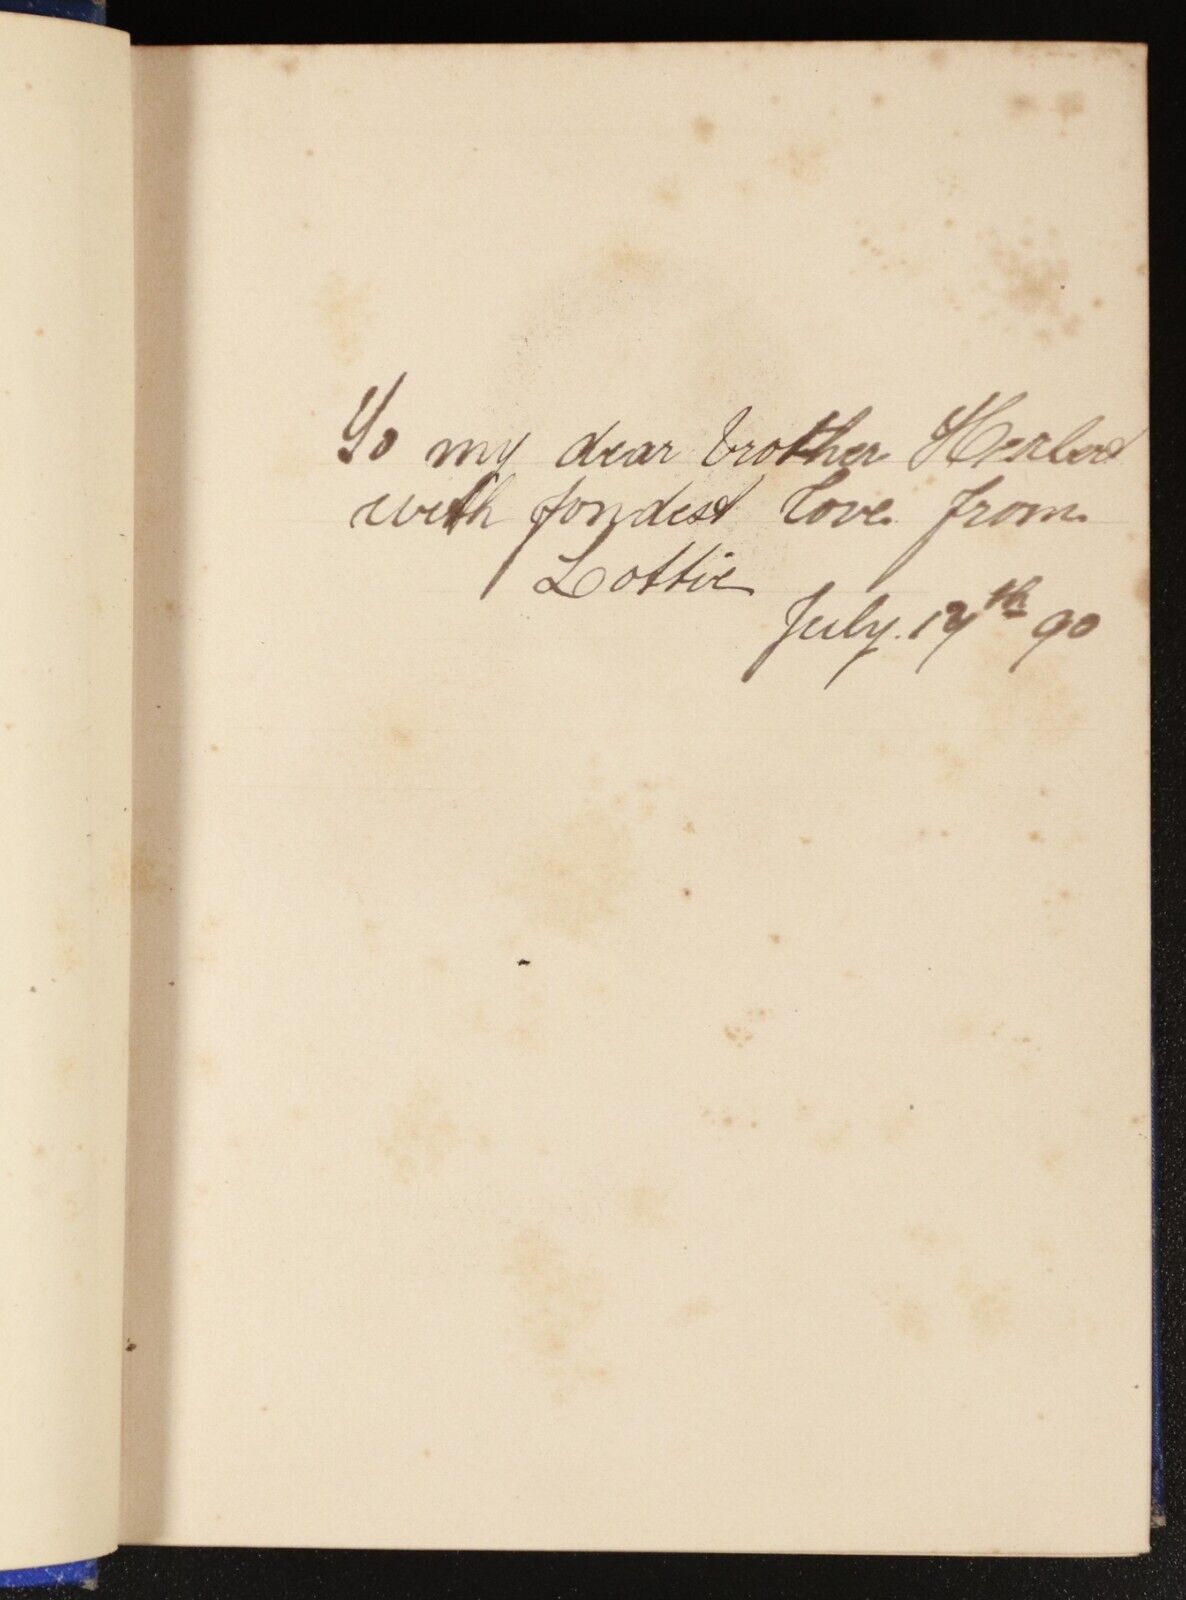 To my dear brother Herbert
with fondest love from
Lottie
July. 17th 90